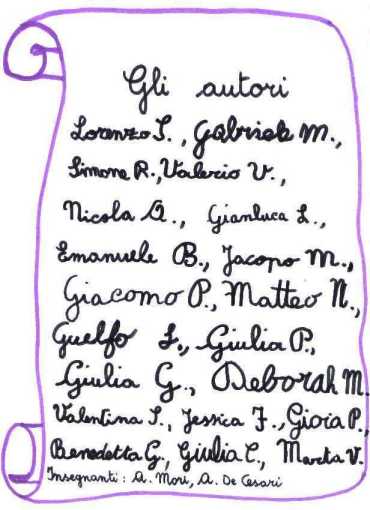 Gli autori
Lorenzo S., Gabriele M.,
Simone R., Valerio V.,
Nicola A., Gianluca L.,
Emanuele B., Jacopo M.,
Giacomo P., Matteo N.,
Guelfo L., Giulia P.,
Giulia G., Deborah M.
Valentina S., Jessica F., Gioia P.,
Benedetta G., Giulia C., Marta V.
Insegnanti: A. Mori, A. De Cesari